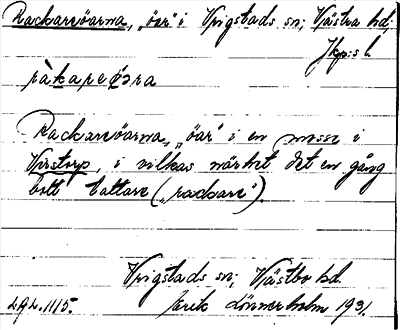 Rackareöarna, "öar" i Vrigstads sn; Västra hd;
Jkp:s l.
ràkareöarna
Rackareöarna, "öar" i en mosse i
Virstorp, i vilkas närhet det en gång
bott tattare ("rackare").
Vrigstads sn; Västbo hd.
LAL. 1115. Erik Lönnerholm 1931.